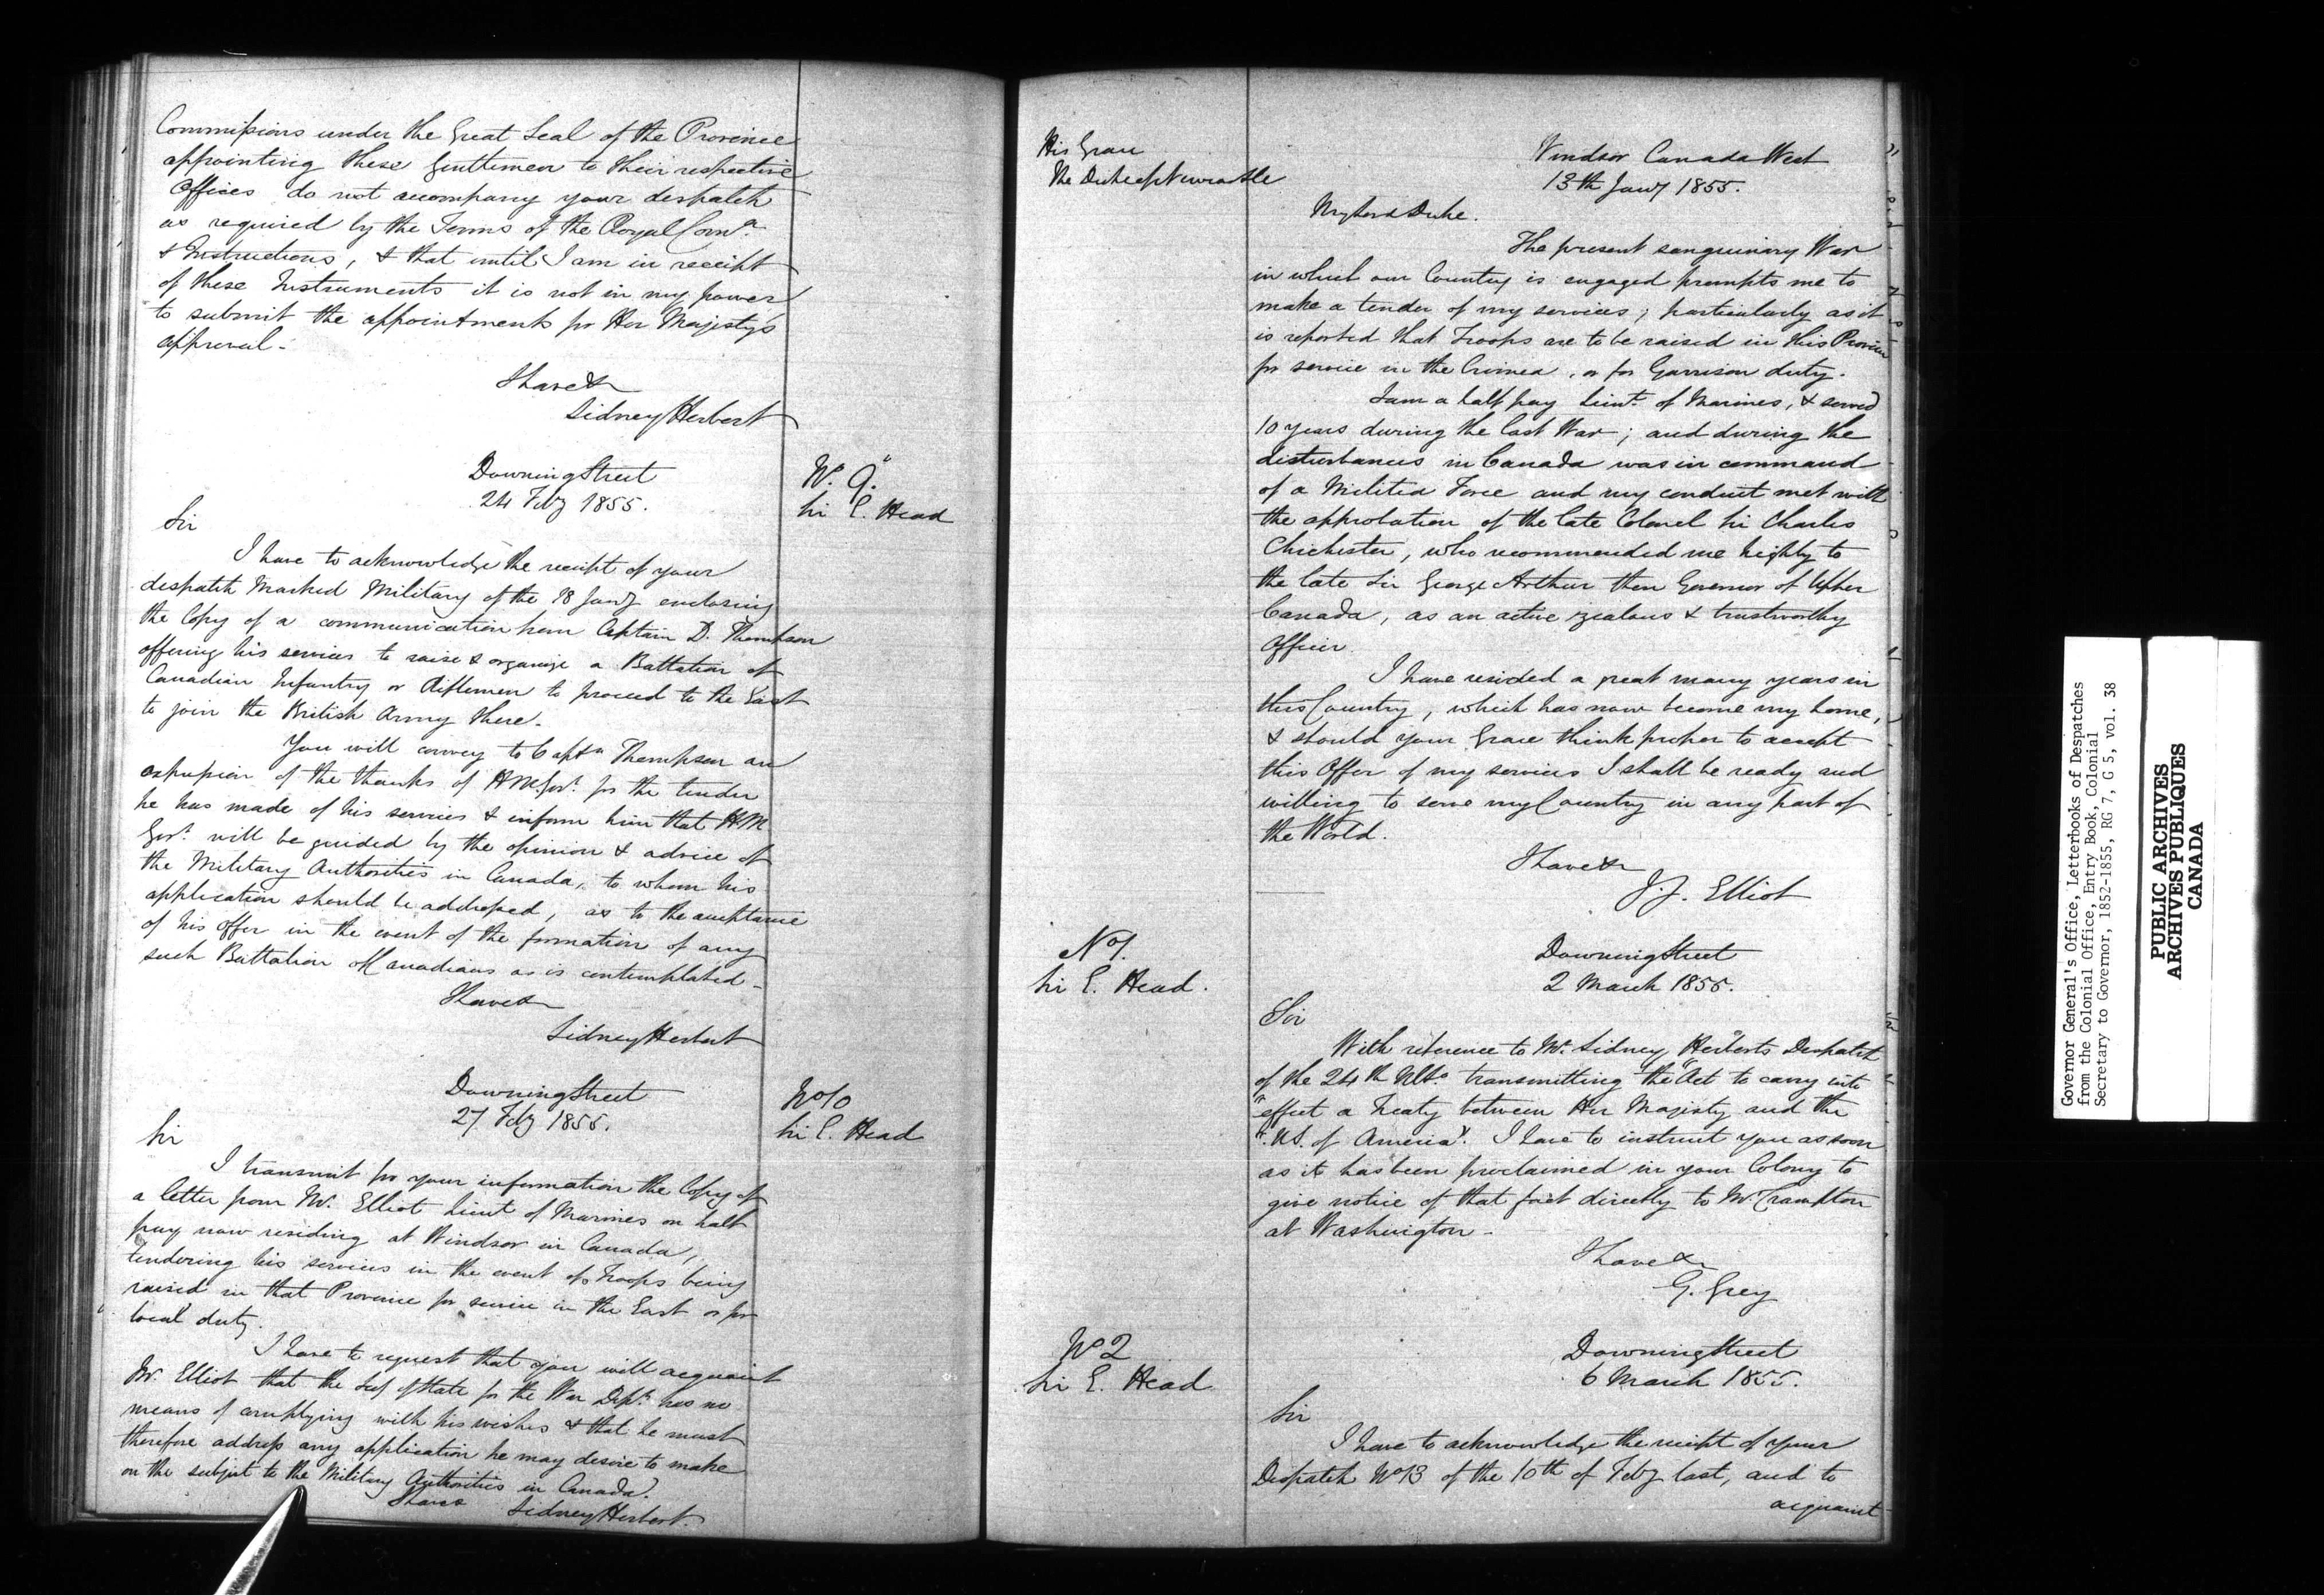 Commissions under the Great Seal of the Province
appointing these Gentlemen to their respective
Offices do not accompany your despatch
as required by the Terms of the Royal Comn.
& Instructions, & that until I am in receipt
of these Instruments it is not in my power
to submit the appointments for Her Majesty's
approval -
I have &c
Sidney Herbert
Downing Street
24 Feby 1855.
No. 9.
Sir E. Head
Sir
I have to acknowledge the receipt of your
despatch marked Military of the 18 Jany enclosing
the Copy of a communication from Captain D. Thompson
offering his services to raise & organize a Battalion of
Canadian Infantry or Riflemen to proceed to the East
to join the British Army there.
You will convey to Captn Thompson an
expression of the thanks of H M Govt. for the tender
he has made of his services & inform him that H.M.
Govt. will be guided by the opinion & advice of
the Military Authorities in Canada, to whom his
application should be addressed, as to the acceptance
of his offer in the event of the formation of any
such Battalion of Canadians as is contemplated -
I have &c
Sidney Herbert
Downing Street
27 Feby 1855.
No 10
Sir E. Head
Sir
I transmit for your information the Copy of
a letter from Mr. Elliot Lieut of Marines on half
pay now residing at Windsor in Canada,
tendering his services in the event of Troops being
raised in that Province for service in the East or for
local duty.
I have to request that you will acquaint
Mr. Elliot that the Secy of State for the War Dept. has no
means of complying with his wishes & that he must
therefore address any application he may desire to make
on the subject to the Military Authorities in Canada.
I have &c
Sidney Herbert.
His Grace
The Duke of Newcastle
Windsor Canada West
13th Jany 1855.
My Lord Duke.
The present sanguinary War
in which our Country is engaged prompts me to
make a tender of my services; particularly as it
is reported that Troops are to be raised in this Province
for service in the Crimea, or for Garrison duty.
I am a half pay Lieut. of Marines, & served
10 years during the last War; and during the
disturbances in Canada was in command
of a Militia Force and my conduct met with
the approbation of the late Colonel Sir Charles
Chichester, who recommended me highly to
the late Sir George Arthur then Governor of Upper
Canada, as an active zealous & trustworthy
Officer
I have resided a great many years in
this Country, which has now become my home,
& should your Grace think proper to accept
this Offer of my services I shall be ready and
willing to serve my Country in any part of
the World.
I have &c
J. J. Elliot
No 1.
Sir E. Head.
Downing Street
2 March 1855.
Sir
With reference to Mr. Sidney Herberts Despatch
of the 24th Ulto. transmitting the "Act to carry into
"effect a Treaty between Her Majesty and the
"U.S. of America". I have to instruct you as soon
as it has been proclaimed in your Colony to
give notice of that fact directly to Mr. Crampton
at Washington -
I have &c
G. Grey
No 2
Sir E. Head
Downing Street
6 March 1855.
Sir
I have to acknowledge the receipt of your
Despatch No 13 of the 10th of Feby last, and to
acquaint
Governor General's Office, Letterbooks of Despatches
from the Colonial Office, Entry Book, Colonial
Secretary to Governor, 1852-1855, RG 7, G 5, vol. 38
PUBLIC ARCHIVES
ARCHIVES PUBLIQUES
CANADA